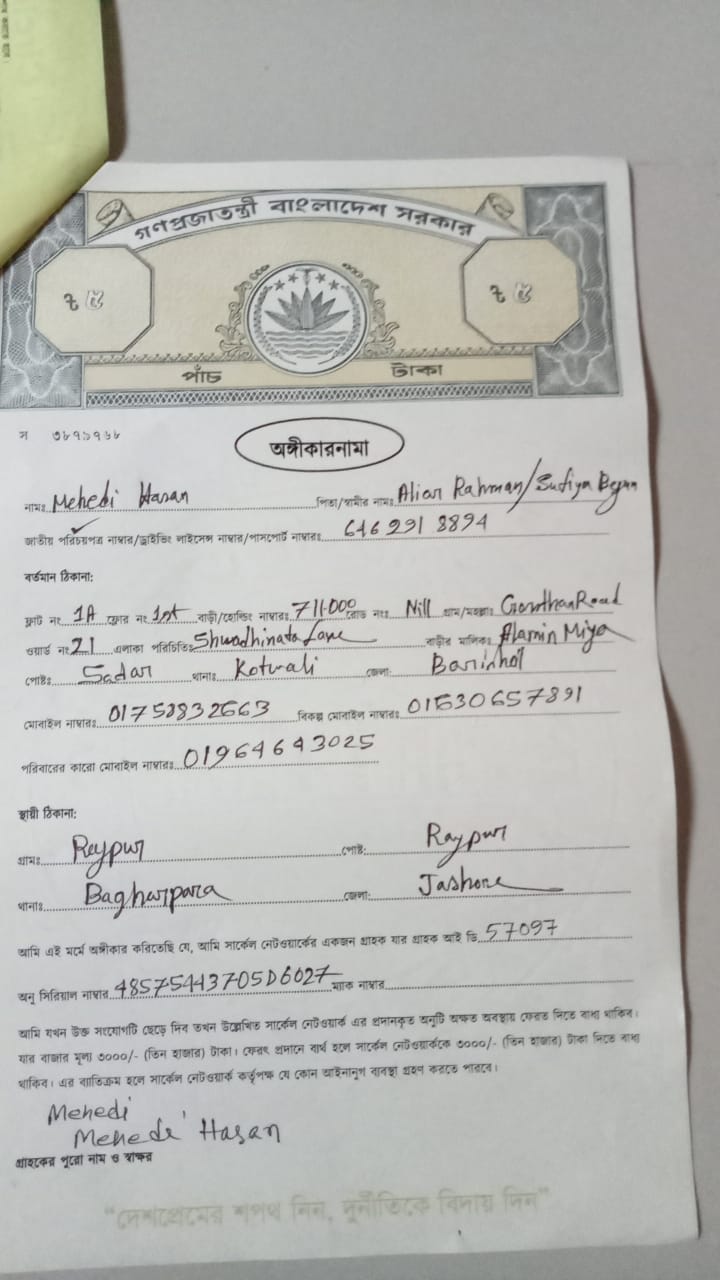 গণপ্রজাতন্ত্রী বাংলাদেশ সরকার
৳ ৫ ৳ ৫
পাঁচ টাকা
স ৩৮৭১৭৬৮
অঙ্গীকারনামা
নামঃ Mehedi Hasan পিতা/স্বামীর নামঃ Aliar Rahman/Sufiya Begum
জাতীয় পরিচয়পত্র নাম্বার/ড্রাইভিং লাইসেন্স নাম্বার/পাসপোর্ট নাম্বারঃ 646 291 8894
বর্তমান ঠিকানা:
ফ্লাট নং 1A ফ্লোর নং 1st বাড়ী/হোল্ডিং নাম্বারঃ 711-000 রোড নংঃ Nill গ্রাম/মহল্লাঃ Road
ওয়ার্ড নংঃ 21 এলাকা পরিচিতিঃ Shwadhinata Lane বাড়ীর মালিকঃ Alamin Miya
পোষ্টঃ Sadar থানাঃ Kotwali জেলা: Barishal
মোবাইল নাম্বারঃ বিকল্প মোবাইল নাম্বারঃ 01630657891
পরিবারের কারো মোবাইল নাম্বারঃ 01964643025
স্থায়ী ঠিকানা:
গ্রামঃ Raypur পোষ্ট: Raypur
থানাঃ Bagharpara জেলা: Jashore
আমি এই মর্মে অঙ্গীকার করিতেছি যে, আমি সার্কেল নেটওয়ার্কের একজন গ্রাহক যার গ্রাহক আই ডি 57097
অনু সিরিয়াল নাম্বার 48575443705D6027 ম্যাক নাম্বার
আমি যখন উক্ত সংযোগটি ছেড়ে দিব তখন উল্লেখিত সার্কেল নেটওয়ার্ক এর প্রদানকৃত অনুটি অক্ষত অবস্থায় ফেরত দিতে বাধ্য থাকিব।
যার বাজার মূল্য ৩০০০/- (তিন হাজার) টাকা। ফেরৎ প্রদানে ব্যর্থ হলে সার্কেল নেটওয়ার্ককে ৩০০০/- (তিন হাজার) টাকা দিতে বাধ্য
থাকিব। এর ব্যতিক্রম হলে সার্কেল নেটওয়ার্ক কর্তৃপক্ষ যে কোন আইনানুগ ব্যবস্থা গ্রহণ করতে পারবে।
Mehedi
Mehedi Hasan
গ্রাহকের পুরো নাম ও স্বাক্ষর
“দেশপ্রেমের শপথ নিন, দুর্নীতিকে বিদায় দিন”